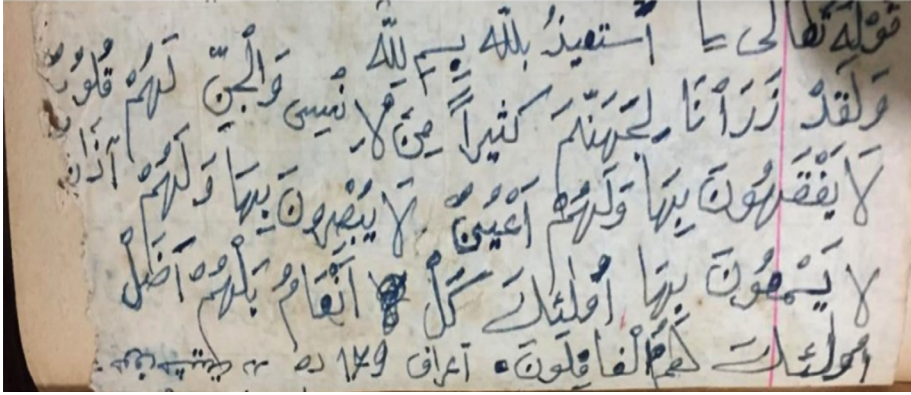 قَوْلِهِ تَعَالَى أَسْتَعِيذُ بِللّٰه بِسمِ لِلّٰه
وَلَقَدْ زَرَأْنَا لِجَهَنَّمَ كَثِيراً مِنَ لْاِنْسِى وَالْجِنِّ لَهُمْ قُلُوبُ
لَا يَفْقَهُونَ بِهَا وَلَهُمْ اَعْيُنٌ لَا يُبْصِرُونَ بِهَا وَلَهُمْ آذَانٌ
لَا يَسْمَعُونَ بِهَا اُولٰئِكَ كَلْ اَنْعَامُ بَلْهُمْ اَضَلْ
اُولٰئِكَ هُمُ الْغَافِلُونَ. اعراف 179 ده